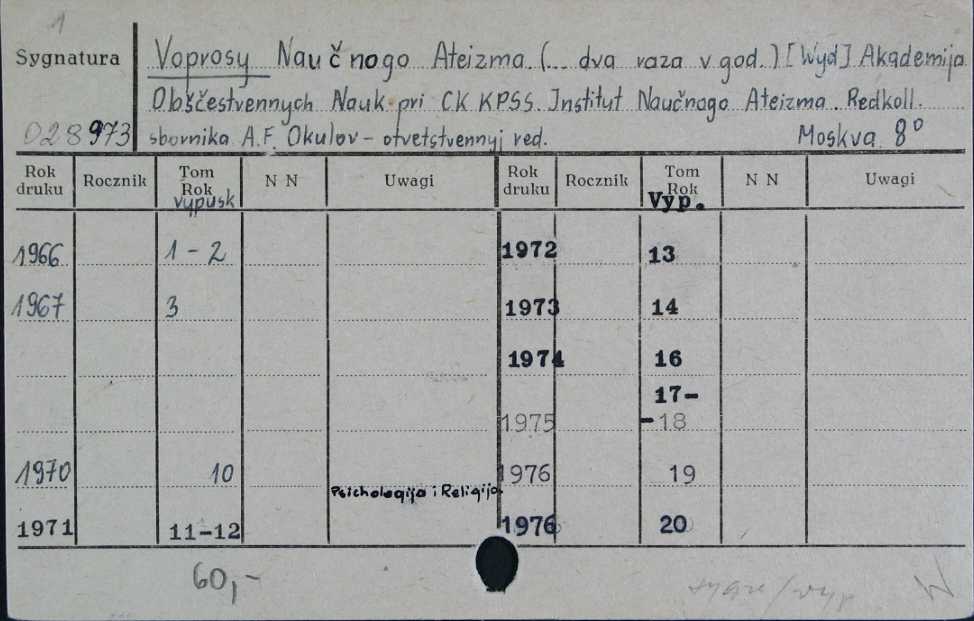 1
Sygnatura
Voprosy Naučnogo Ateizma. (... dva raza v god.) [Wyd] Akademija
Obščestvennych Nauk pri CK KPSS. Institut Naučnogo Ateizma. Redkoll.
028973 sbornika A.F. Okulov – otvetstvennyj red. Moskva 8°
Rok druku Rocznik Tom Rok vypusk N N Uwagi Rok druku Rocznik Tom Rok Vyp. N N Uwagi
1966 1 – 2 1972 13
1967 3 1973 14
1974 16
17–
1975 –18
1970 10 1976 19
Psichologija i Religija
1971 11–12 1976 20
60,–